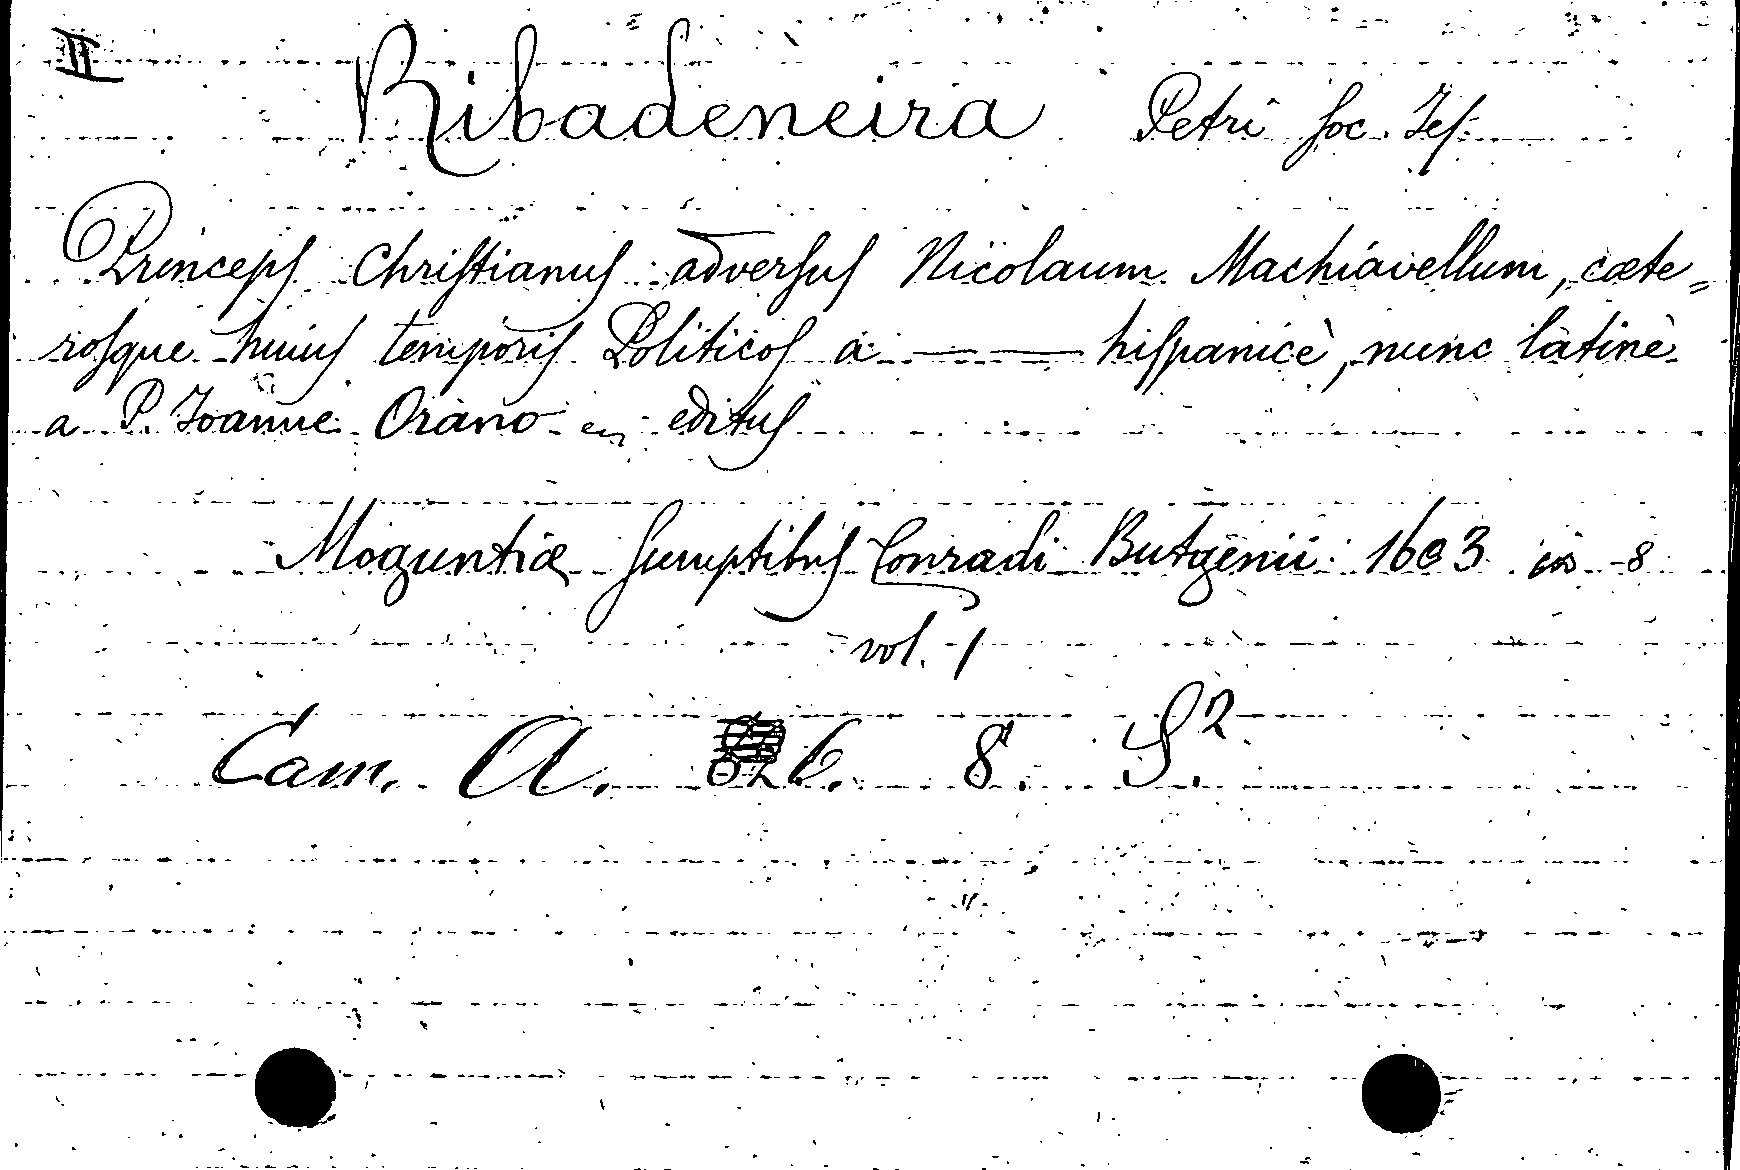 II
Ribadeneira Petri Soc. Jes:
Princeps Christianus adversus Nicolaum Machiavellum, cæte=
rosque huius temporis Politicos a —— hispanicè, nunc latinè
a P. Joanne Orano editus
Moguntiæ sumptibus Conradi Butgenii 1603 in 8
vol. 1
Cam. A. 6. 8. S.2